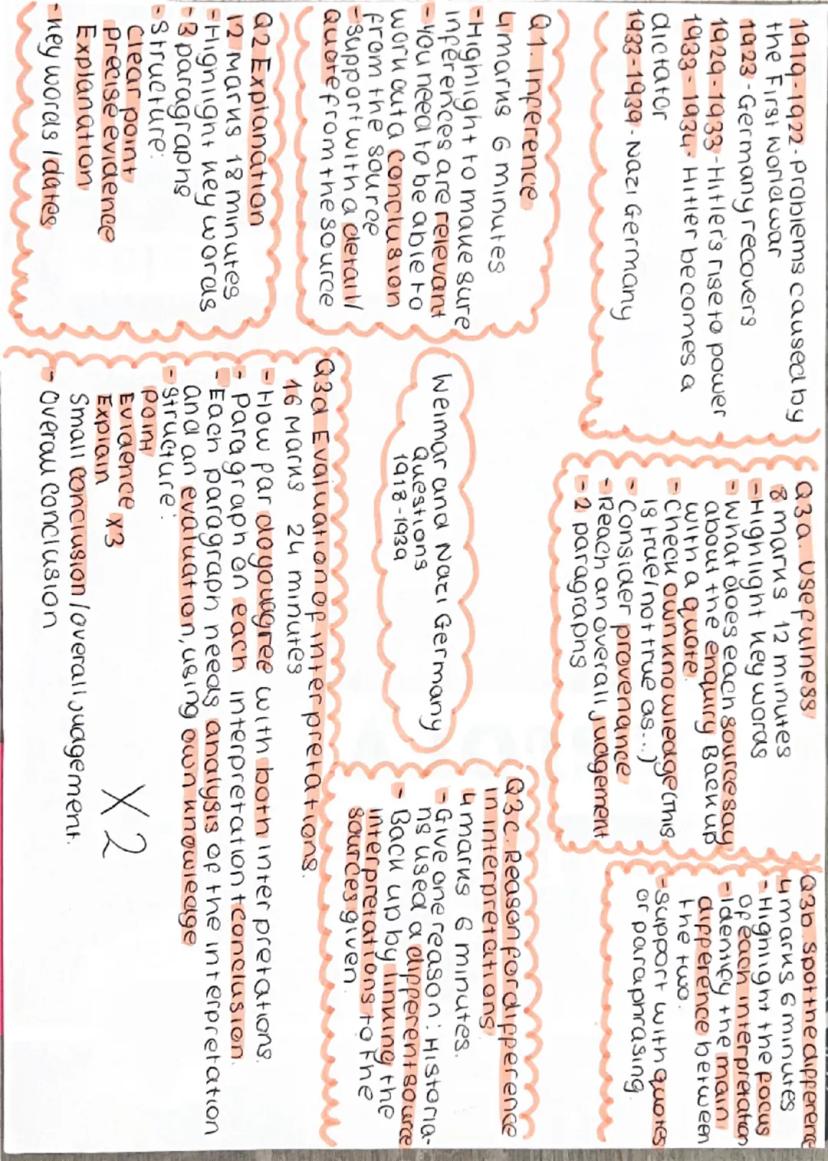 1919-1922-problems caused by
the First world war
1923-Germany recovers
1929-1933-Hitler's rise to power
1933-1934-Hitler becomes a
dictator
1933-1939-Nazi Germany
Q3a. usefulness
8 marks 12 minutes
-Highlight key words
-what does each source say
about the enquiry Back up
with a quote.
-Check own knowledge (This
is true/not true as...)
-Consider provenance
-Reach an overall judgement
-2 paragraphs
Q3b spot the difference
4 marks 6 minutes
-Highlight the focus
of each interpretation
-Identify the main
difference between
the two.
-support with quotes
or paraphrasing.
Q1 Inference
4 marks 6 minutes
-Highlight to make sure
inferences are relevant
-You need to be able to
work out a conclusion
from the source
-support with a detail/
quote from the source
Weimar and Nazi Germany
Questions
1918-1939
Q3c. Reason for difference
in interpretations
4 marks 6 minutes.
-Give one reason: Historia-
ns used a different source
- Back up by linking the
interpretations to the
sources given.
Q2 Explanation
12 Marks 18 minutes
-Highlight key words
-3 paragraphs
-Structure:
Clear point
precise evidence
Explanation
-key words/dates
Q3d Evaluation of interpretations.
16 Marks 24 minutes
- How far do you agree with both interpretations.
- Paragraph on each interpretation + conclusion.
-Each paragraph needs analysis of the interpretation
and an evaluation, using own knowledge
-structure:
Point
Evidence x3
Explain
Small conclusion/overall judgement.
- Overall conclusion
X2